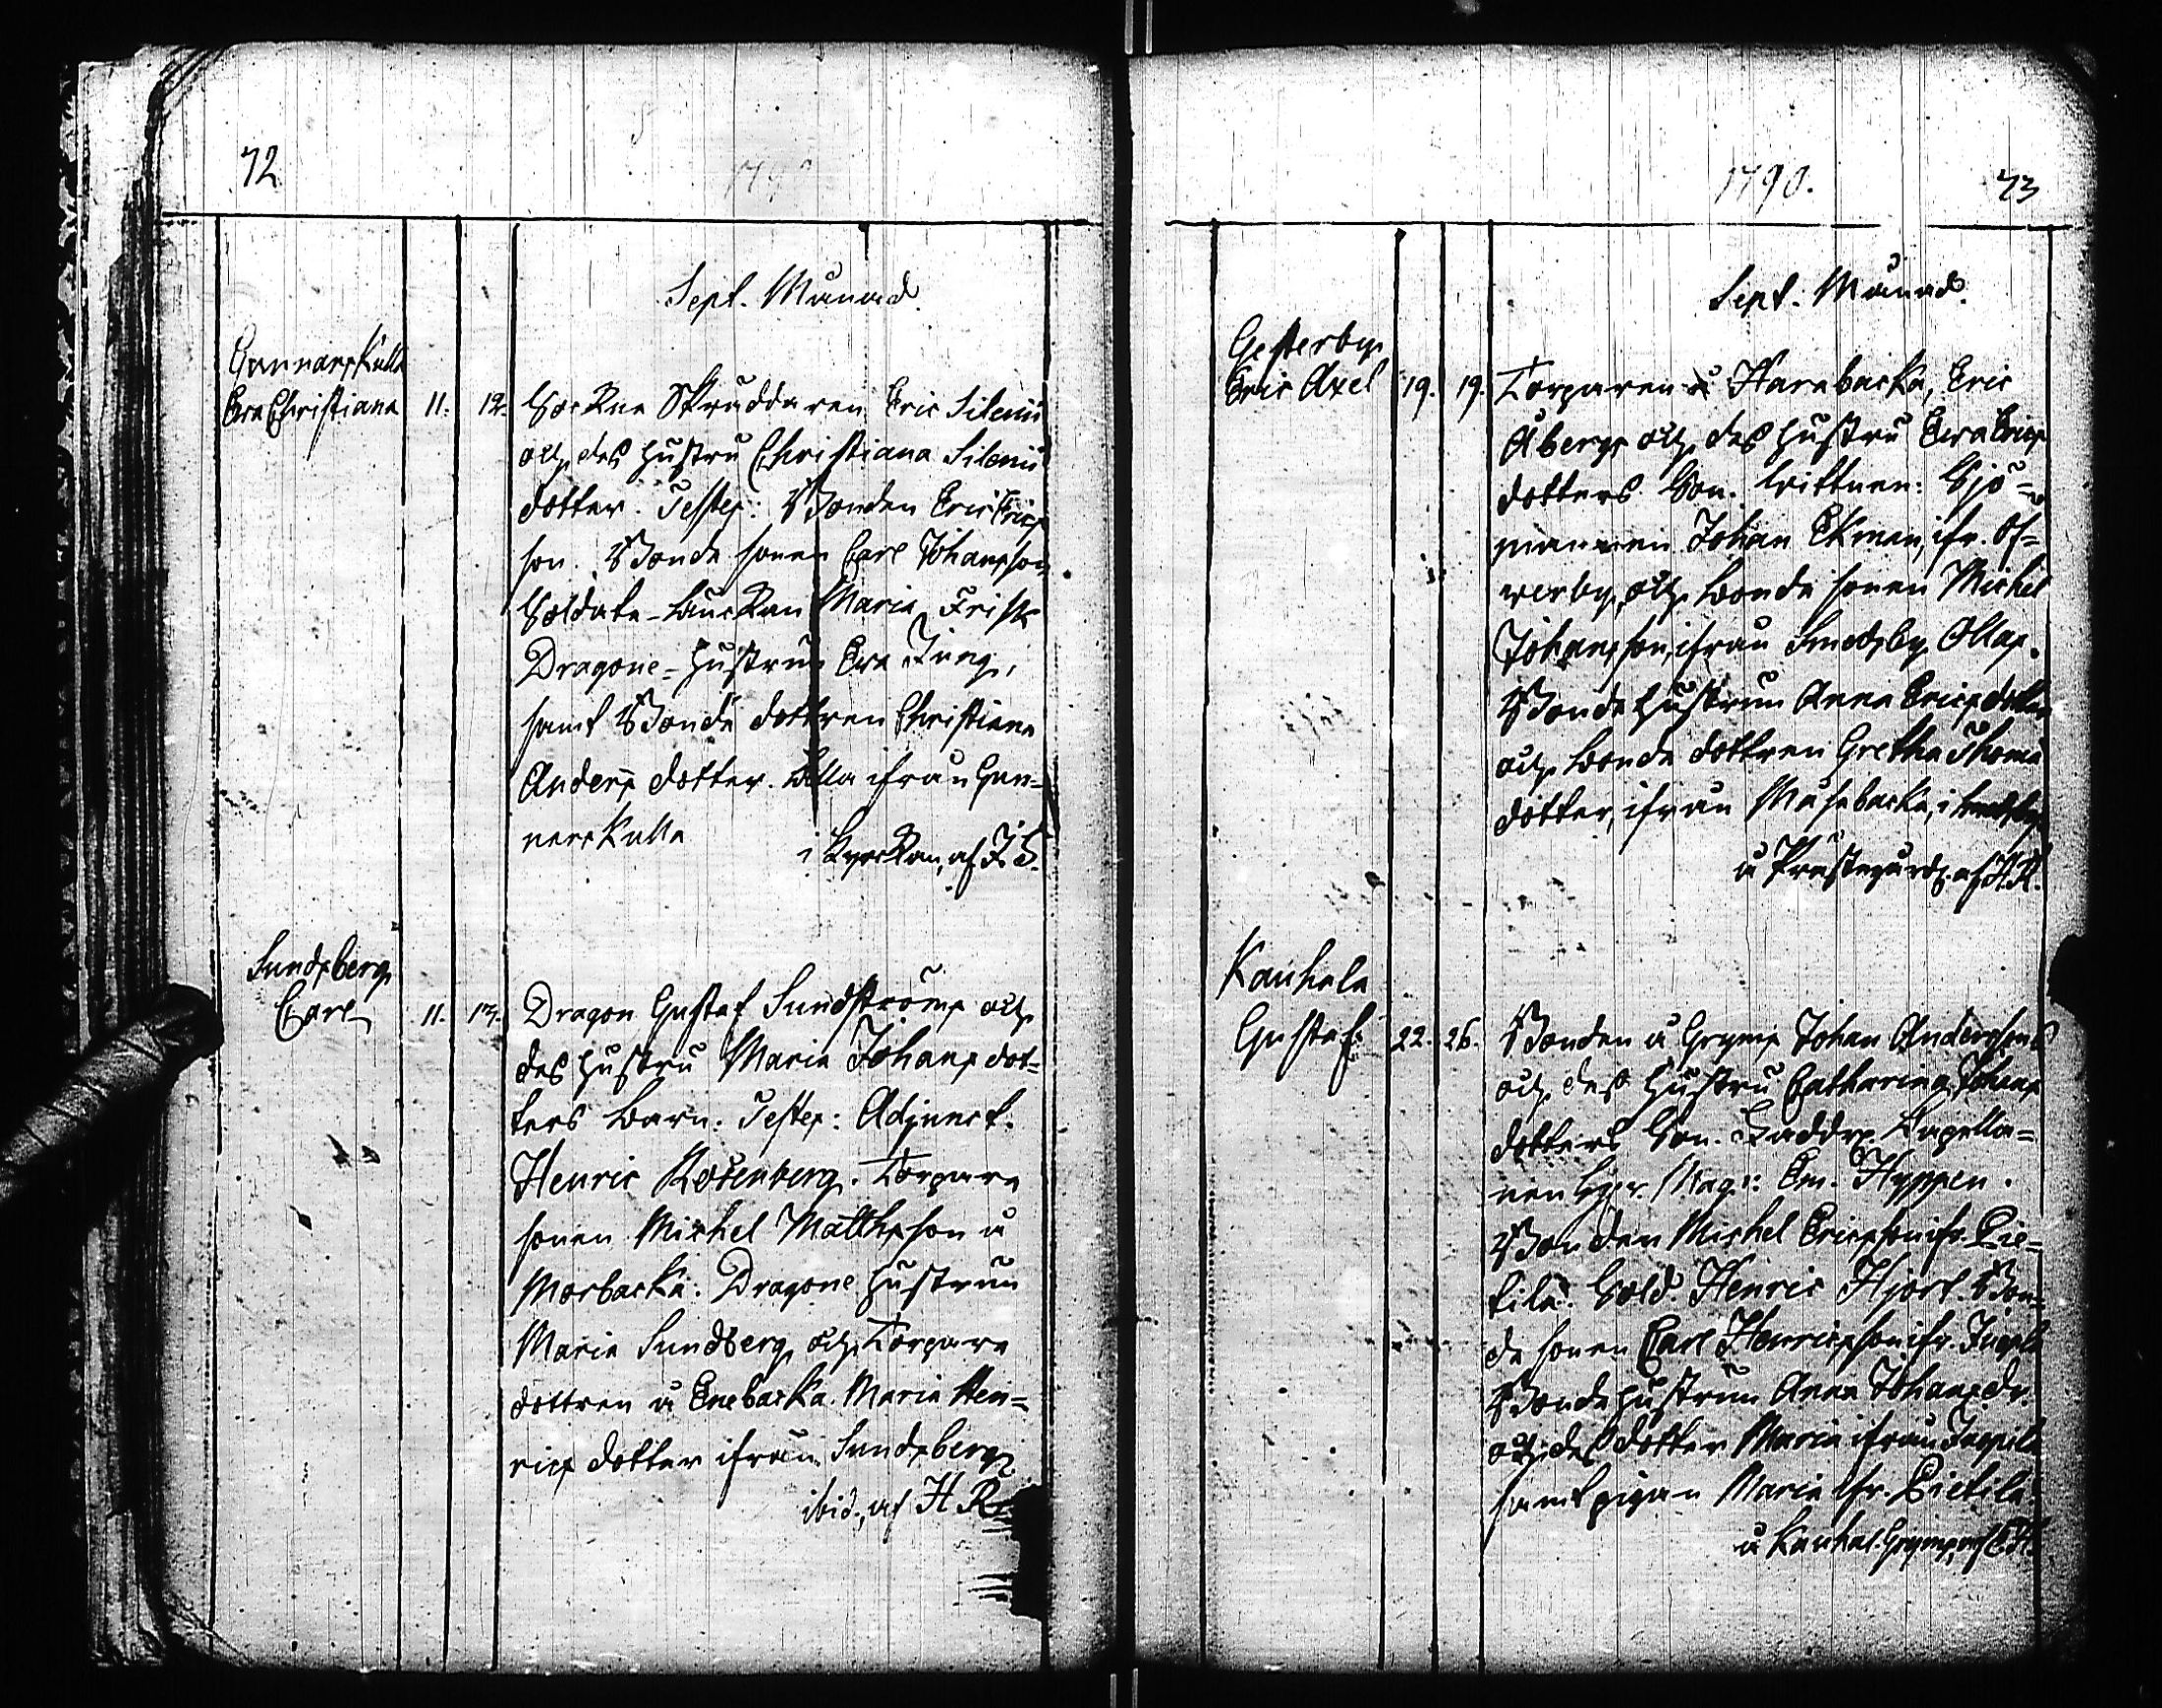 72
1790
Sept. Månad
Gunnarskulla
Eva Christiana 11. 12. Sockne Skräddaren Eric Silenii
och des hustru Christiana Silenii
dotter. Testes: Bonden Eric Erics
son. Bonde sonen Carl Johansson
Soldate-Enckan Maria Frisk
Dragone-hustrun Eva Ling,
samt Bonde dottren Christiana
Anders dotter. Alla ifrån Gun=
narskulla
i Kyrckan, af
Sundsberg
Carl 11. 13. Dragon Gustaf Sundströms och
des hustru Maria Johans dot=
ters Barn. Testes: Adjunct.
Henric Rosenberg. Torpare
sonen Michel Matthsson å
Morbacka. Dragone hustrun
Maria Sundberg och Torpare
dottren å Enebacka. Maria Hen=
rics dotter ifrån Sundsberg
ibid., af H R
1790. 73
Sept. Månad.
Gesterby
Eric Axel 19. 19. Torparen å Harabacka, Eric
Åbergs och des hustru Eva Erics
dotters Son. Wittnen: Sjö=
mannen Johan Ekman, ifr. Öf=
werby, och Bonde sonen Michel
Johansson, ifrån Smedsby Ollas.
Bonde hustrun Anna Ericsdotter
och Bonde dottren Gretha Thomæ
dotter, ifrån Måsabacka, i
å Prästegård. af H.R.
Kauhala
Gustaf 22. 26. Bonden å Gryms Johan Anderssons
och dess hustru Catharina Johans
dotters Son. Faddr. Kapella=
nen Mag:r Em. Hyppen.
Bonden Michel Ericsson ifr. Pie=
tilä. Sold Henric Hjort. Bon=
de sonen Carl Henricsson ifr.
Bonde hustrun Anna Johans dr.
och des dotter Maria ifrån
samt pigan Maria ifr. Pietilä
å Kauhal. Gryms, af E.H.